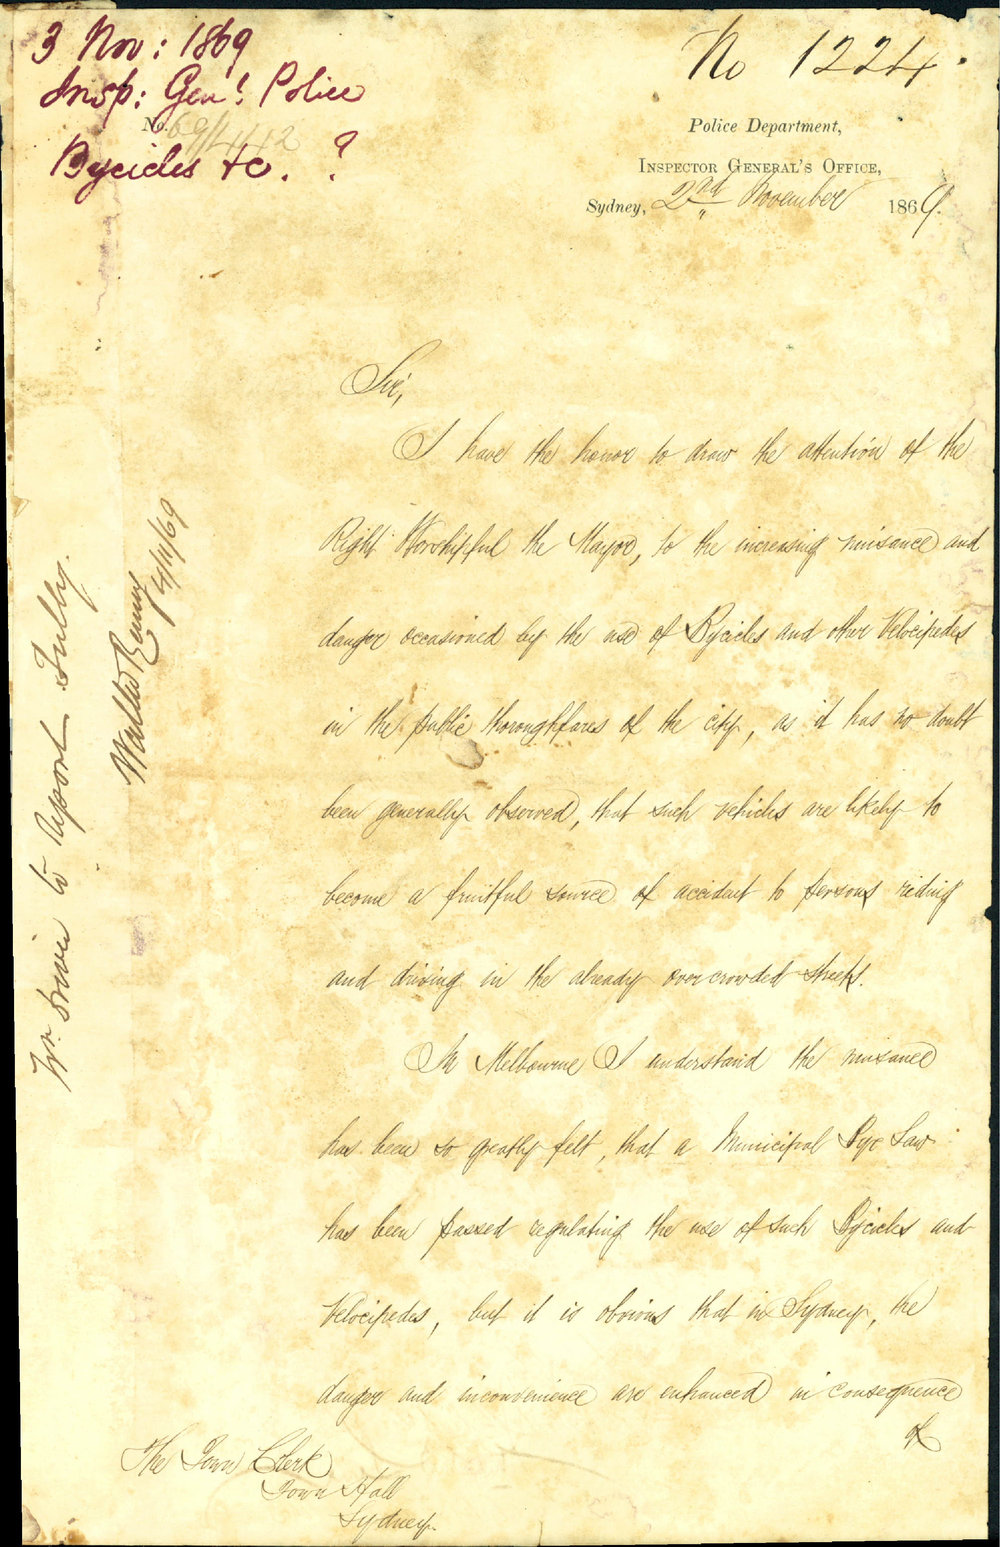 3 Nov: 1869
Insp: Gen! Police
Bycicles &c. ?
No 1224.
No. 69/1442
Police Department,
INSPECTOR GENERAL'S OFFICE,
Sydney, 2nd November 1869.
Sir,
I have the honor to draw the attention of the
Right Worshipful the Mayor, to the increasing nuisance and
danger occasioned by the use of Bycicles and other Velocipedes
in the public thoroughfares of the city, as it has no doubt
been generally observed, that such vehicles are likely to
become a fruitful source of accident to persons riding
and driving in the already overcrowded streets.
In Melbourne I understand the nuisance
has been so greatly felt, that a Municipal Bye Law
has been passed regulating the use of such Bycicles and
Velocipedes, but it is obvious that in Sydney, the
danger and inconvenience are enhanced in consequence
of
The Town Clerk
Town Hall
Sydney.
Mr. Driver to report fully.
Walter Renny
4/11/69